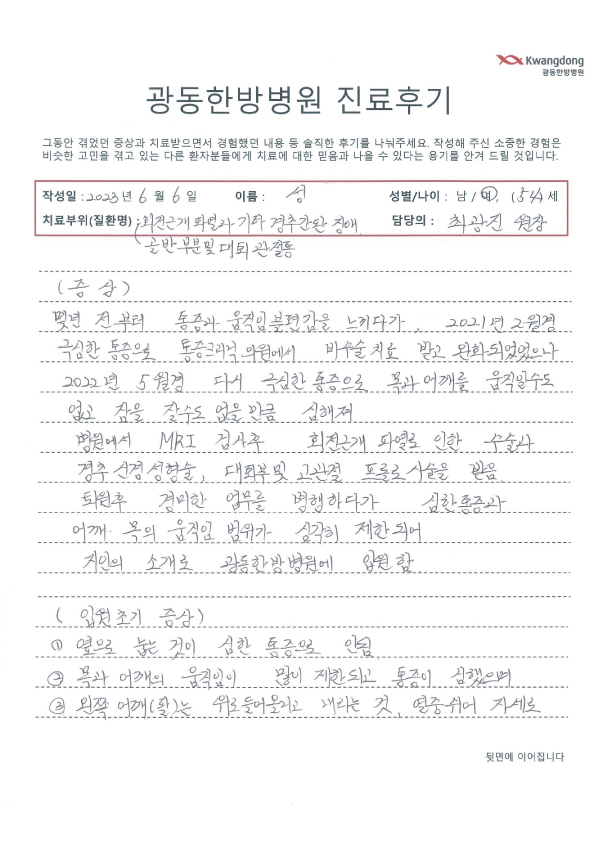 Kwangdong
광동한방병원
광동한방병원 진료후기
그동안 겪었던 증상과 치료받으면서 경험했던 내용 등 솔직한 후기를 나눠주세요. 작성해 주신 소중한 경험은
비슷한 고민을 겪고 있는 다른 환자분들에게 치료에 대한 믿음과 나을 수 있다는 용기를 안겨 드릴 것입니다.
작성일 : 2023년 6월 6일 이름 : 성 성별/나이 : 남 / 여, (54)세
치료부위(질환명) : 회전근개파열과 기타 경추간판 장애 담당의 : 최광진 원장
골반부분및 대퇴관절통
(증상)
몇년 전부터 통증과 움직임불편감을 느끼다가, 2021년 2월경
극심한 통증으로 통증크리닉 의원에서 비수술치료 받고 완화되었었으나
2022년 5월경 다시 극심한 통증으로 목과 어깨를 움직일수도
없고 잠을 잘수도 없을만큼 심해져
병원에서 MRI 검사후 회전근개 파열로 인한 수술과
경추 신경성형술, 대퇴부및 고관절 프롤로시술을 받음.
퇴원후 경미한 업무를 병행하다가 심한통증과
어깨·목의 움직임 범위가 심각히 제한되어
지인의 소개로 광동한방병원에 입원함
(입원초기 증상)
① 옆으로 눕는 것이 심한 통증으로 안됨.
② 목과 어깨의 움직임이 많이 제한되고 통증이 심했으며
③ 왼쪽 어깨(팔)는 위로들어올리고 내리는 것, 열중쉬어 자세로
뒷면에 이어집니다